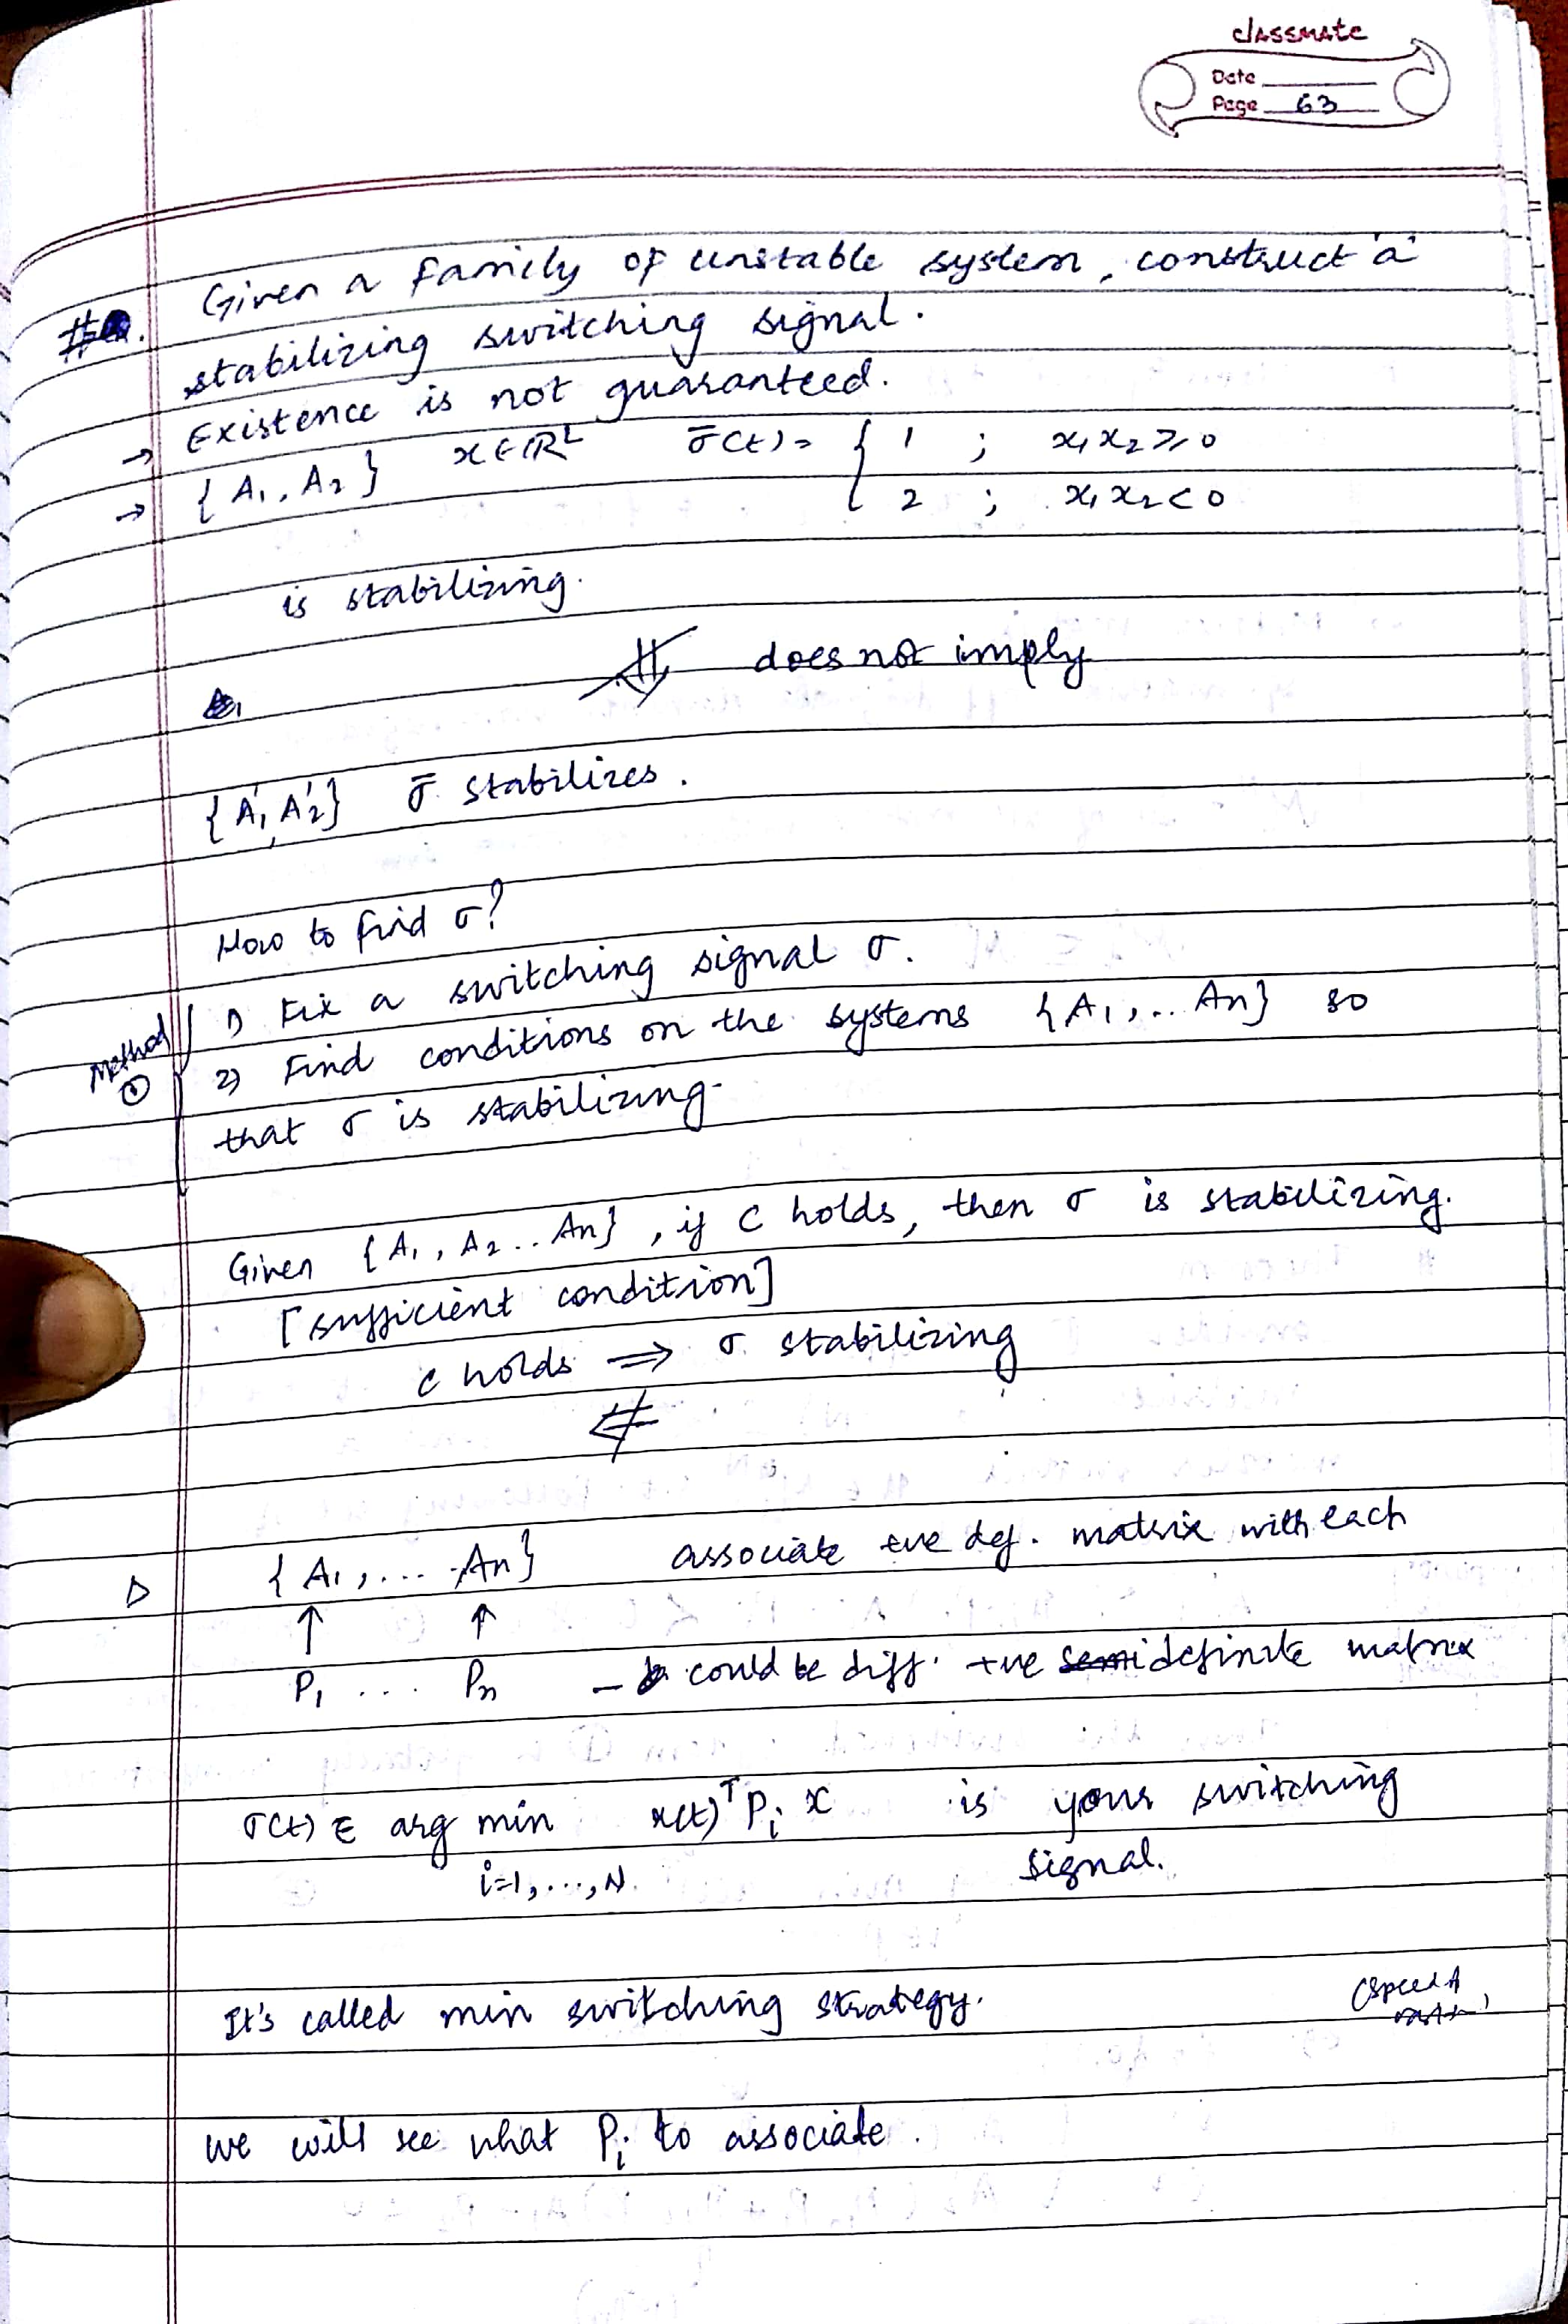 classmate
Date
Page 63
Given a family of unstable system, construct a
stabilizing switching signal.
→ Existence is not guaranteed.
→ {A₁, A₂} x∈ℝ² σ̄(t) = { 1 ; x₁x₂ ≥ 0
2 ; x₁x₂ < 0
is stabilizing.
⇓̸ does not imply
{A₁', A₂'} σ̄ stabilizes.
How to find σ?
Method ① 1) Fix a switching signal σ.
2) Find conditions on the systems {A₁, .. An} so
that σ is stabilizing.
Given {A₁, A₂ .. An}, if C holds, then σ is stabilizing.
[sufficient condition]
C holds ⇒ σ stabilizing
⇍
▷ {A₁, ... An} associate +ve def. matrix with each
↑ ↑
P₁ ... Pn - could be diff. +ve definite matrix
σ(t) ∈ arg min x(t)ᵀ Pᵢ x is your switching
i=1,...,N. signal.
It's called min switching strategy.
we will see what Pᵢ to associate.